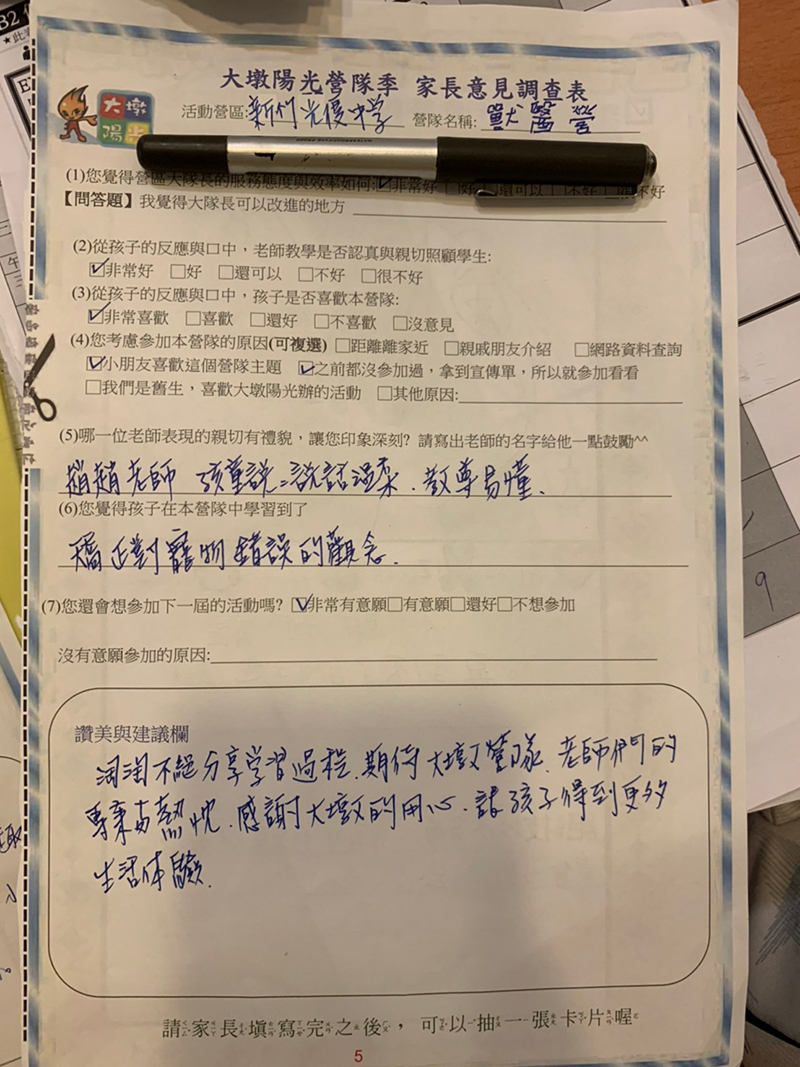 大墩陽光營隊季 家長意見調查表
大墩
陽光
活動營區:新竹光復中学 營隊名稱:獸醫營
(1)您覺得營區大隊長的服務態度與效率如何:☑非常好□好□還可以□不好□很不好
【問答題】我覺得大隊長可以改進的地方
(2)從孩子的反應與口中,老師教學是否認真與親切照顧學生:
☑非常好 □好 □還可以 □不好 □很不好
(3)從孩子的反應與口中,孩子是否喜歡本營隊:
☑非常喜歡 □喜歡 □還好 □不喜歡 □沒意見
(4)您考慮參加本營隊的原因(可複選) □距離離家近 □親戚朋友介紹 □網路資料查詢
☑小朋友喜歡這個營隊主題 ☑之前都沒參加過,拿到宣傳單,所以就參加看看
□我們是舊生,喜歡大墩陽光辦的活動 □其他原因:
(5)哪一位老師表現的親切有禮貌,讓您印象深刻? 請寫出老師的名字給他一點鼓勵^^
趙趙老師 孩童說=說話溫柔.教導易懂.
(6)您覺得孩子在本營隊中學習到了
矯正對寵物錯誤的觀念.
(7)您還會想參加下一屆的活動嗎? ☑非常有意願□有意願□還好□不想參加
沒有意願參加的原因:
讚美與建議欄
淘淘不絕分享学習過程.期待大墩營隊.老師們的
專業与熱忱.感謝大墩的用心.讓孩子得到更多
生活体驗.
請家長填寫完之後,可以抽一張卡片喔
5
9